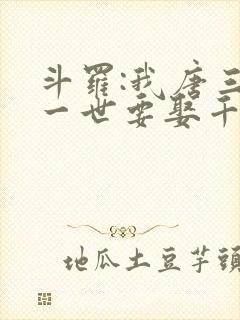 斗罗:我唐三
一世要娶千
地瓜土豆芋頭